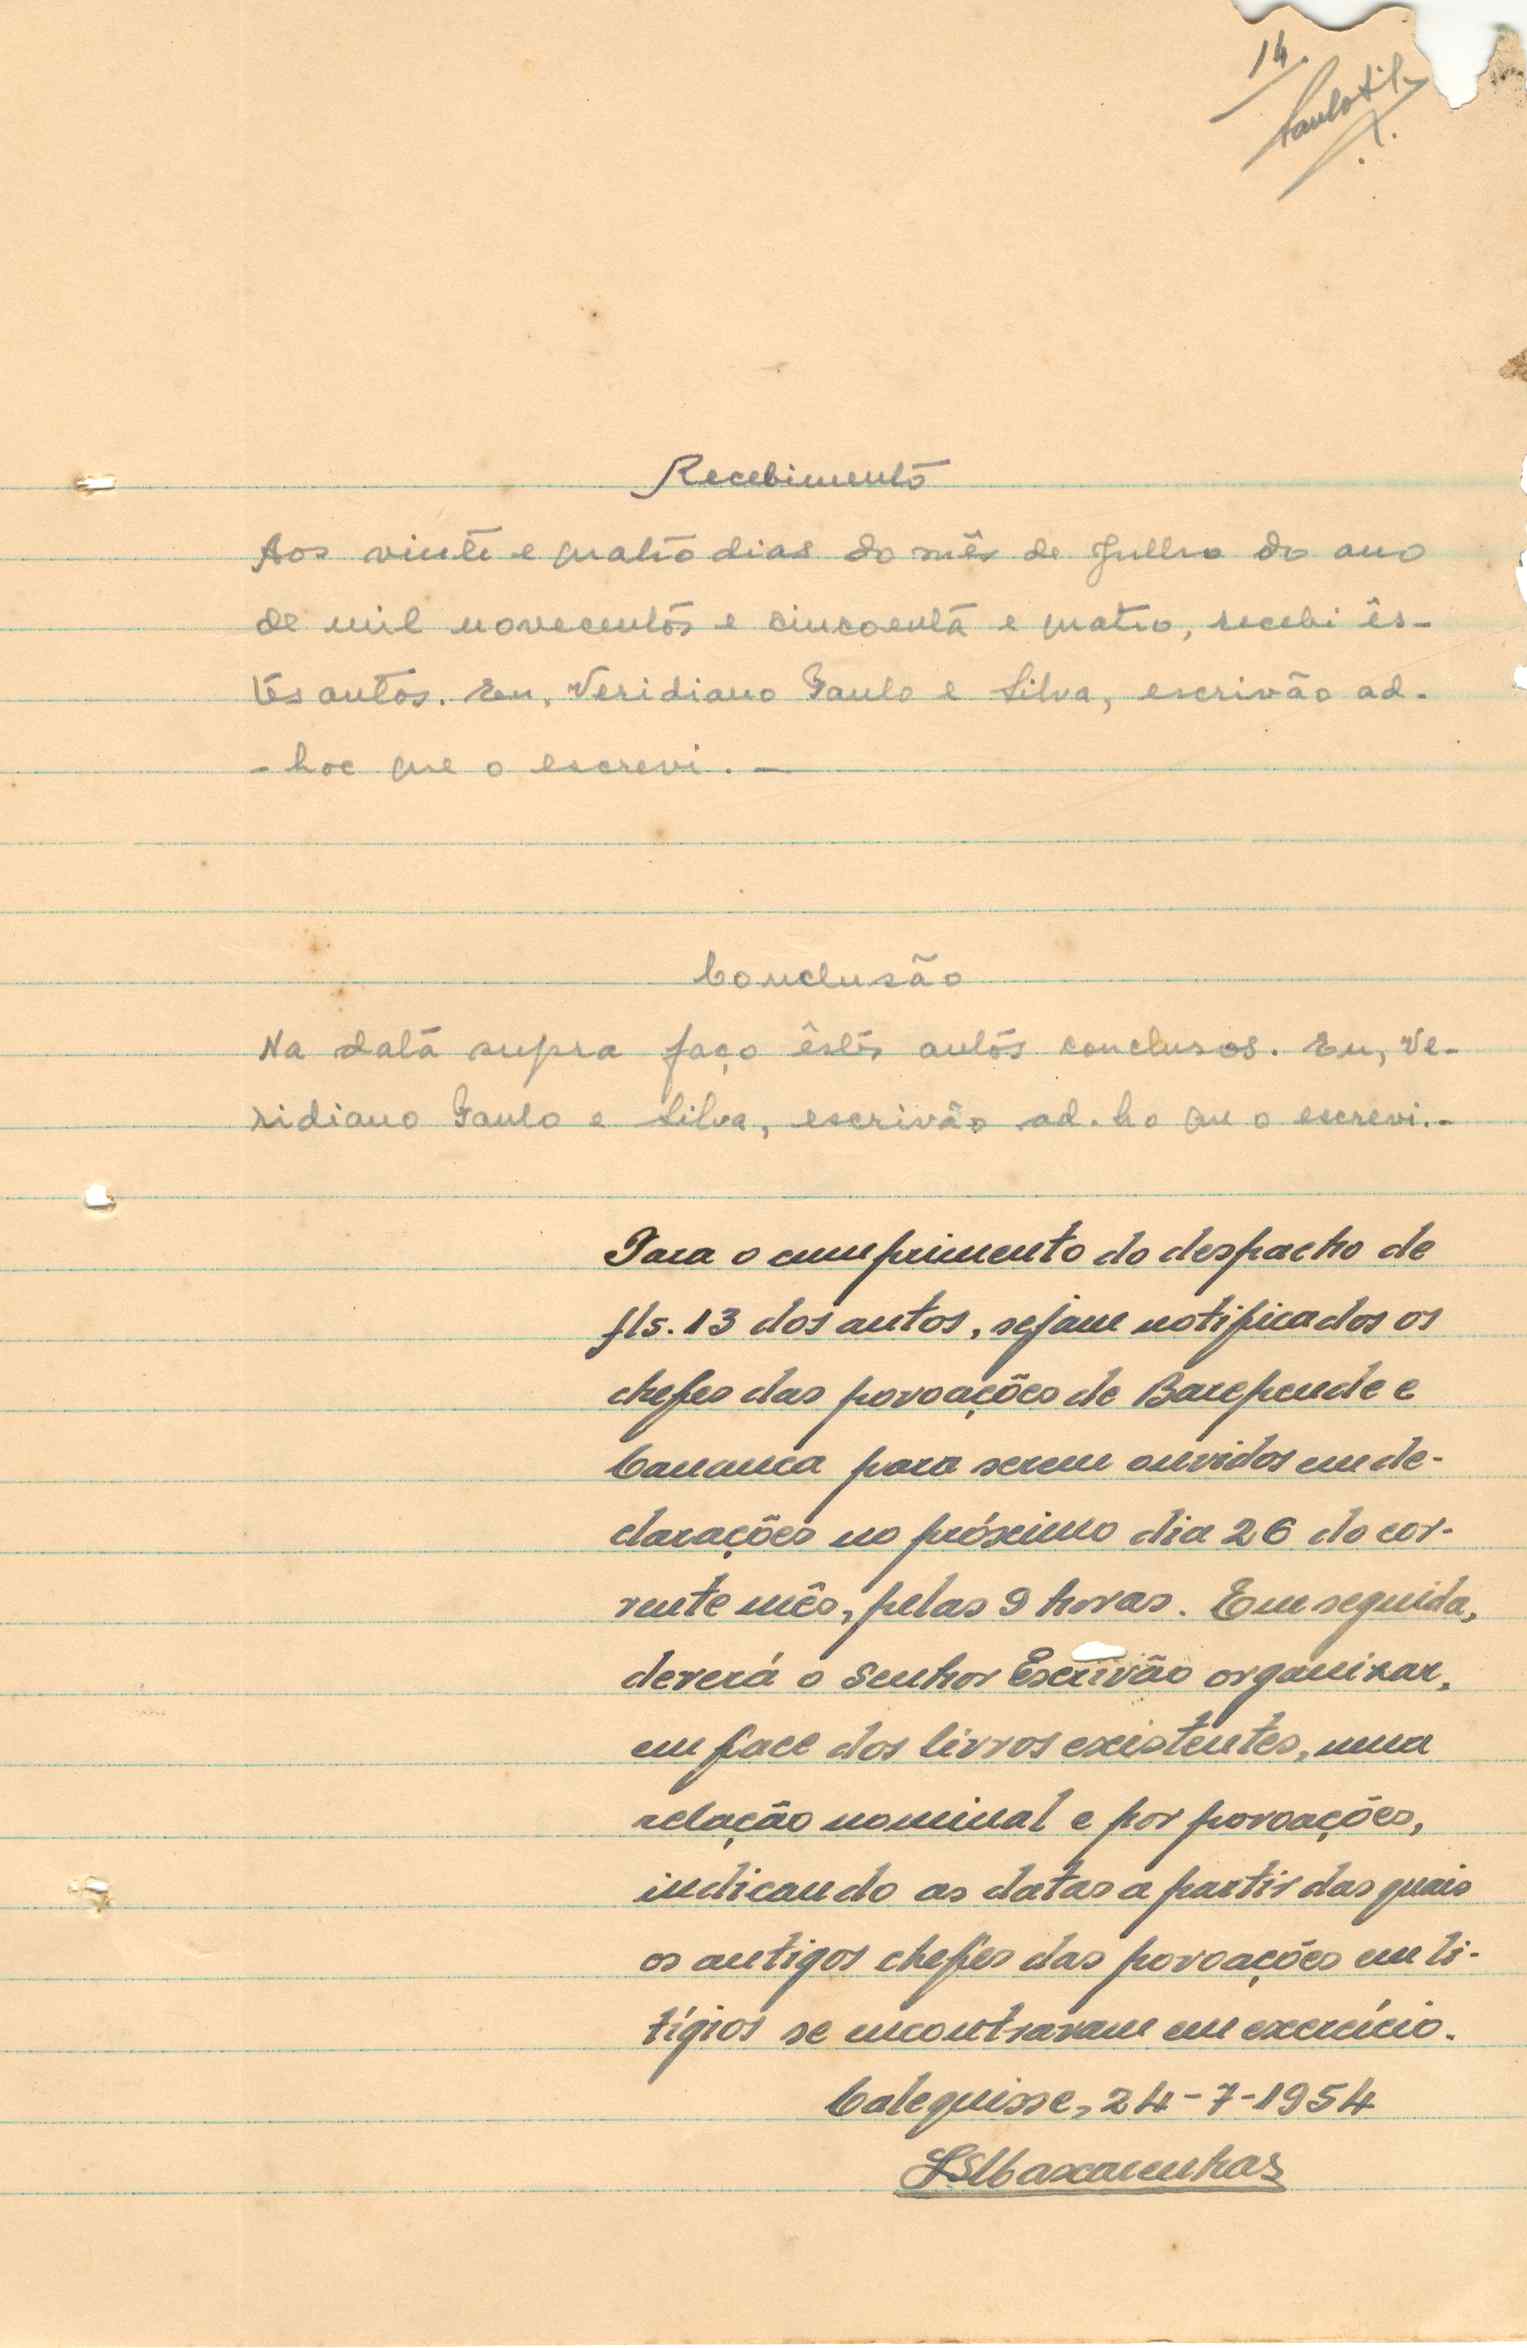 14
Paulo Silva
Recebimento
Aos vinte e quatro dias do mês de Julho do ano
de mil novecentos e cincoenta e quatro, recebi ês-
tes autos. Eu, Veridiano Paulo e Silva, escrivão ad-
-hoc que o escrevi. —
Conclusão
Na data supra faço êstes autos conclusos. Eu, Ve-
ridiano Paulo e Silva, escrivão ad-ho que o escrevi.-
Para o cumprimento do despacho de
fls. 13 dos autos, sejam notificados os
chefes das povoações de
para serem ouvidos em de-
clarações no próximo dia 26 do cor-
rente mês, pelas 9 horas. Em seguida,
deverá o Senhor Escrivão organizar,
em face dos livros existentes, uma
relação nominal e por povoações,
indicando as datas a partir das quais
os antigos chefes das povoações em li-
tígios se encontravam em exercício.
Calequisse, 24-7-1954